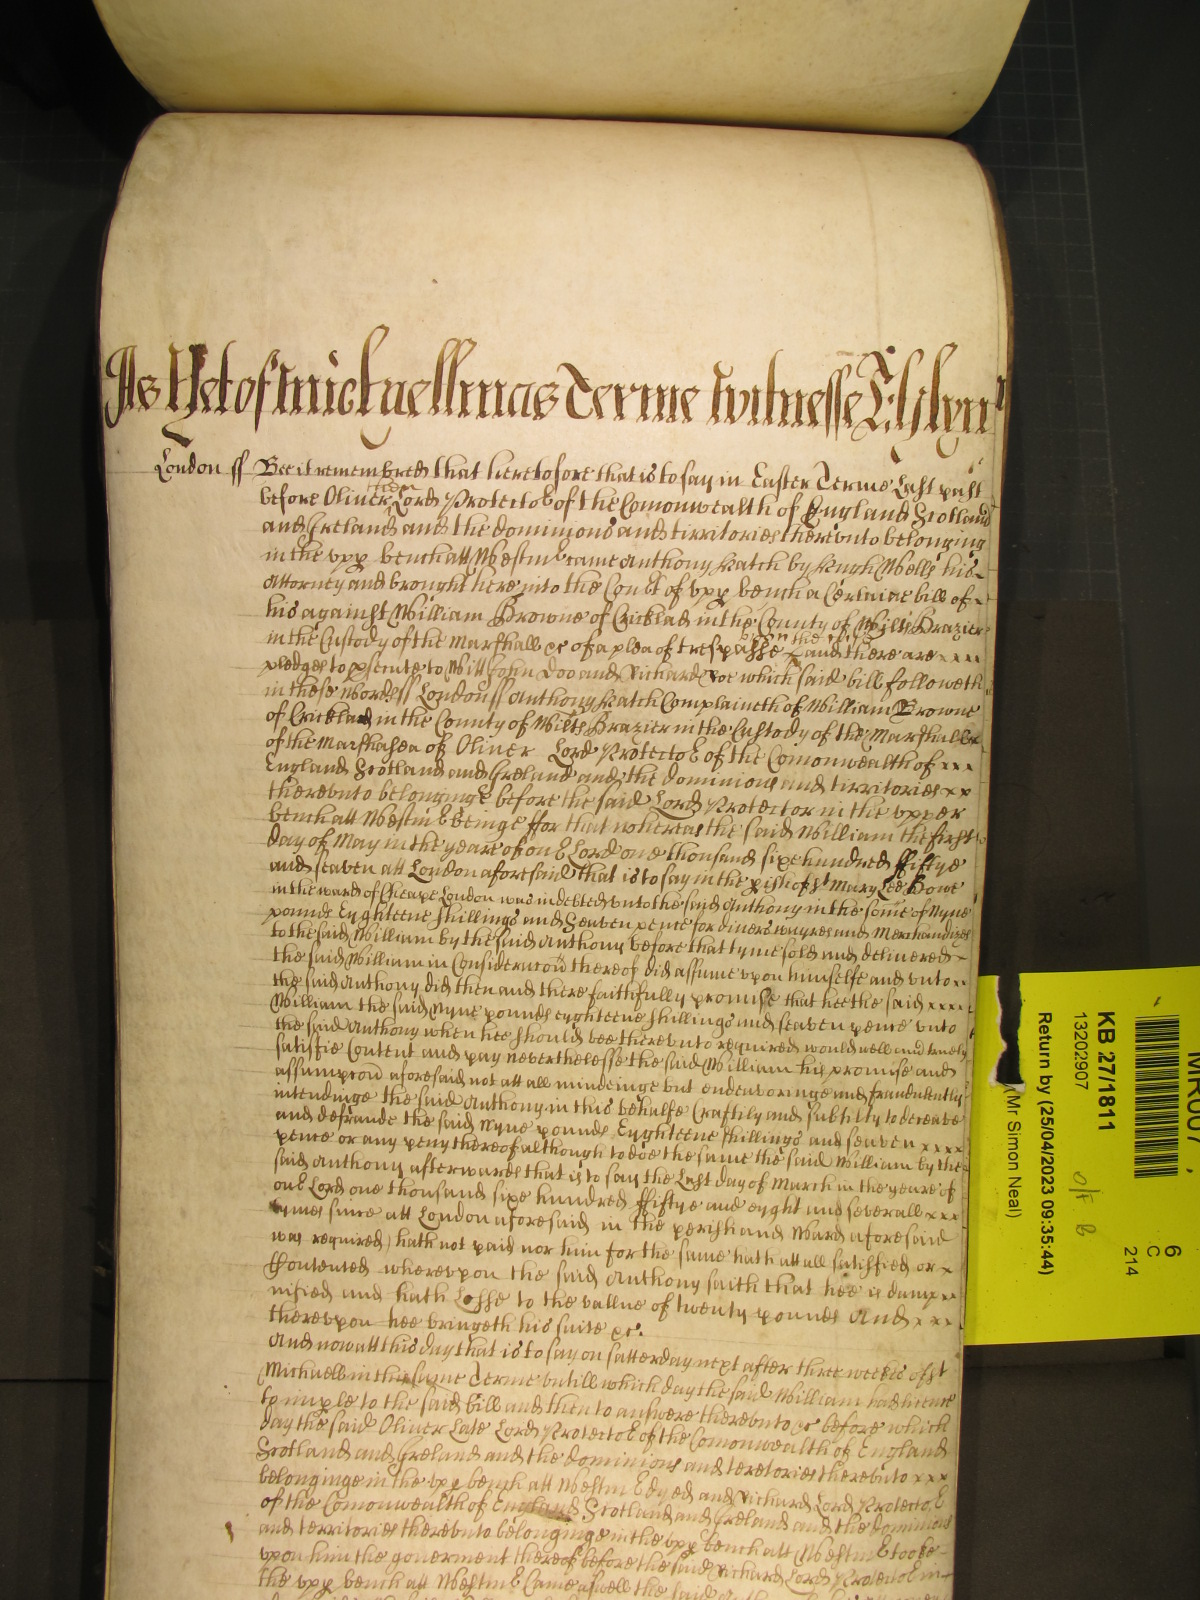 As Yet of Michaellmas Terme Witnesse
London ss Bee it remembred that heretofore that is to say in Easter Terme Last past
then
before Oliver Lord Protector of the Comonwealth of England Scotland
and Ireland and the dominions and tirritories therevnto belonging
in the vpp bench att Westm came Anthony Hatch by Hugh Wells his
Attorney and brought here into the Court of vpp bench a Certaine bill of
his against William Browne of Cricklad in the County of Wilts Brazier
in the Custody of the Marshall &c of a plea of trespasse and there are
pledges to psecute to Witt John Doo and Richard Roe which said bill followeth
in these words ss London ss Anthony Hatch Complaineth of William Browne
of Cricklad in the County of Wilts Brazier in the Custody of the Marshall
of the Marshalsea of Oliver Lord Protector of the Comonwealth of
England Scotland and Ireland and the dominions and tirritories
therevnto belonginge before the said Lord Protector in the vpper
bench att Westm beinge ffor that whereas the said William the first
day of May in the yeare of our Lord one thousand sixe hundred ffiftye
and seaven att London aforesaid that is to say in the pish of St Mary Lee Bowe
in the ward of Cheape London was indebted vnto the said Anthony in the some of Nyne
pounds Eyghteene shillings and Seaven pence for divers wayres and Merchandizes
to the said William by the said Anthony before that tyme sold and delivered
the said William in Consideracon thereof did assume vpon himselfe and vnto
the said Anthony did then and there faithfully promise that hee the said
William the said Nyne pounds eyghteene shillings and seaven pence vnto
the said Anthony when hee should bee therevnto required would well and truely
satisfie Content and pay neverthelesse the said William his promise and
assumpcon aforesaid not att all mindeinge but endeavoringe and fraudulently
intendinge the said Anthony in this behalfe Craftily and subtilly to deceave
and defraude the said Nyne pounds Eyghteene shillings and seaven
pence or any peny thereof although to doe the same the said William by the
said Anthony afterwards that is to say the Last day of March in the yeare of
our Lord one thousand sixe hundred ffiftye and eyght and severall
tymes since att London aforesaid in the perish and Ward aforesaid
was required) hath not paid nor him for the same hath att all satisfied or
Contented wherevpon the said Anthony saith that hee is damp
nified and hath Losse to the vallue of twenty pounds And
therevpon hee bringeth his suite &c.
And now att this day that is to say on satterday next after three weekes of st
Michaell in this same Terme untill which day the said William had licence
to imple to the said bill and then to answere therevnto &c before which
day the said Oliver Late Lord Protector of the Comonwealth of England
Scotland and Ireland and the dominions and teretories therevnto
belonginge in the vpp bench att Westm dyed and Richard Lord Protector
of the Comonwealth of England Scotland and Ireland and the dominions
and territories therevnto belonginge in the vpp bench att Westm tooke
vpon him the goverment thereof before the said Richard Lord Protector in
the vpp bench att Westm Came aswell the said
KB 27/1811
13202907
Return by (25/04/2023 09:35:44)
(Mr Simon Neal)
6
C
214